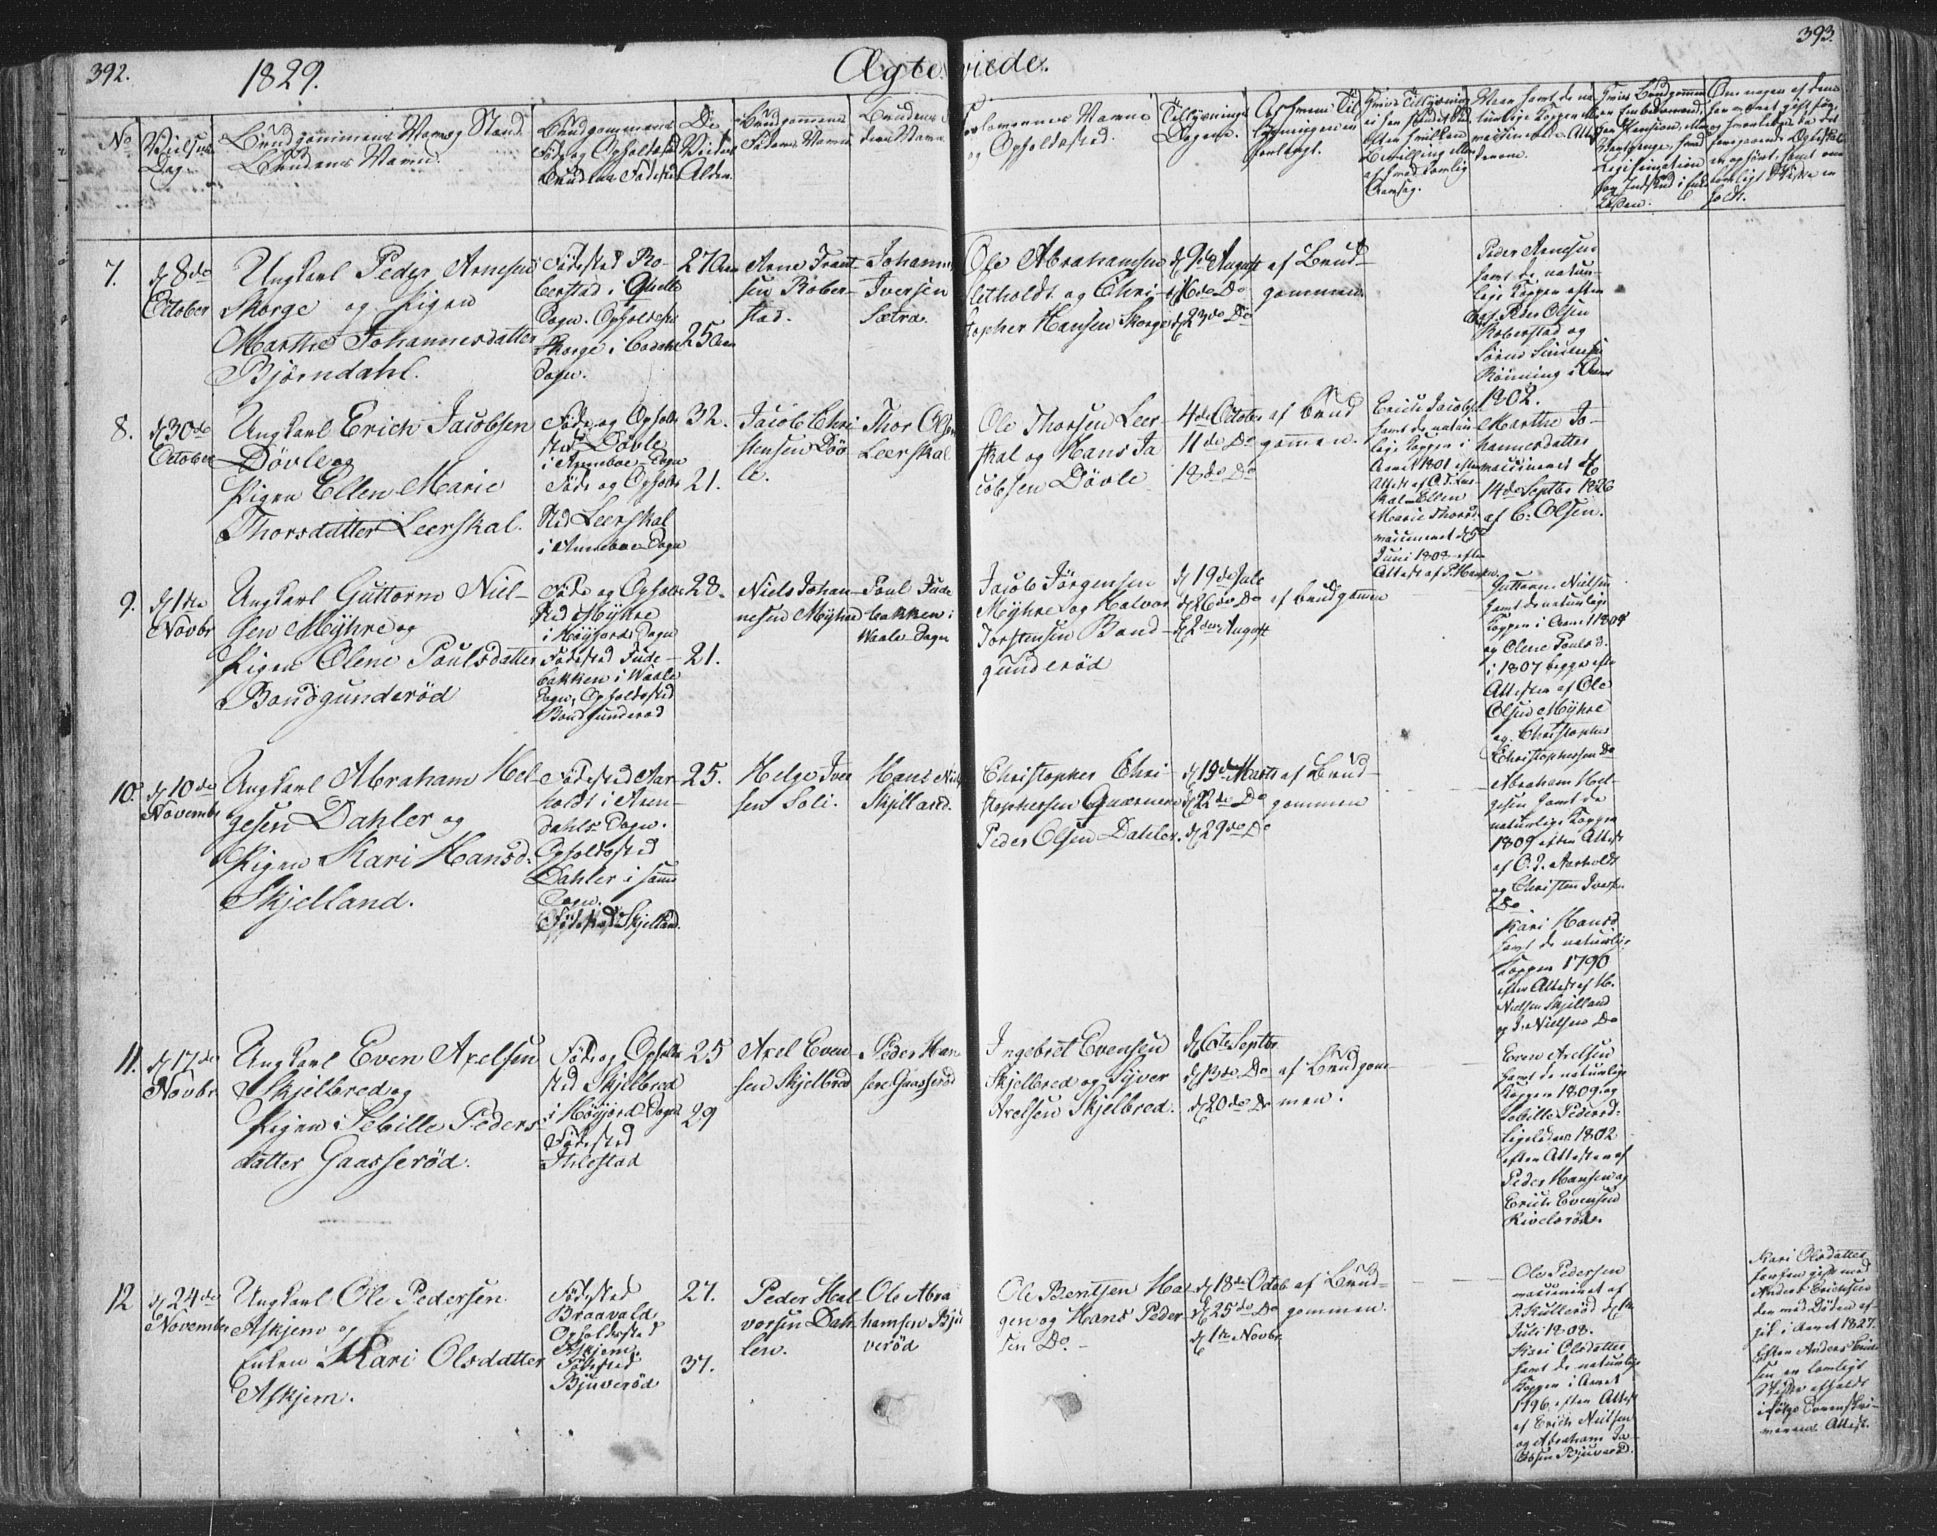 392.
1829.
Ægteviede.
393.
No
Vielses
Dag.
Brudgommens Navn og Stand.
Brudens Navn.
Brudgommens
Føde og Opholdssted
Brudens Fødested
De
Viedes
Alder.
Brudgommens
Faders Navn
Brudens Fa-
ders Navn
Forlovernes Navne
og Opholdssted.
Tillysnings
Dagene.
Af hvem Til
lysningen er
forlangt.
7.
d 8de
October
Ungkarl Peder Arnesen
Skorge og Pigen
Marthe Johannesdatter
Bjørndahl.
Fødested Ro-
berstad i
Sogn. Opholdssted
Skorge i
Sogn.
27 Aar
25 Aar
Arne Trant-
sen Rober-
stad.
Johannes
Iversen
Sætra.
Ole Abrahamsen
Holtholdt og Chri-
stopher Hansen Skorge
d 9de August
d 16de Do
d 23de Do
af Brud-
gommen.
Peder Arnesen
havt de natur-
lige Kopper efter
Peder Olsen
Roberstad og
Rønning i Aaret
1802.
Marthe Jo-
hannesdatter
vaccineret d
14de Septbr 1826
af C. Olsen.
8.
d 30de
October
Ungkarl Erich Jacobsen
Døvle og
Pigen Ellen Marie
Thorsdatter Leerskal.
Føde og Opholds
sted Døvle
i Arneboe Sogn
Føde og Opholds
sted Leerskal
i Arneboe Sogn
32.
21.
Jacob Chri
stensen Døv
le.
Thor Olsen
Leerskal
Ole Thorsen Leer-
skal og Hans Ja
cobsen Døvle
4de October
11de Do
18de Do
af Brud
gommen.
Erich Jacobs.
havt de natur-
lige Kopper i
Aaret 1801 efter
Attest af
Ellen
Marie Thorsd.
vaccineret d 5
Juni 1808 efter
Attest af P. Hansen
9.
d 1ste
Novbr
Ungkarl Guttorm Niel-
sen Mÿhre og
Pigen Olene Poulsdatter
Bondgunderød
Føde og Opholds
sted Mÿhre
i Høyjord Sogn
Fødested Fude-
bakken i Waale
Sogn, Opholdssted
Bondgunderød
28.
21.
Niels Johan-
nesen Mÿhre
Poul Fude
bakken i
Waale Sogn
Jacob Jørgensen
Mÿhre og Halvor
Torstensen Bond-
gunderød
d 19de Juli
d 26de Do
d 2den August
af Brudgommen
Guttorm Nielsen
havt de naturlige
Kopper i Aaret 1808
og Olene Poulsd.
i 1807 begge efter
Attester af Ole
Olsen Mÿhre
og Christopher
Christophersen Do
10.
d 10de
Novembr
Ungkarl Abraham Hel-
gesen Dahler og
Pigen Kari Hansd.
Skjelland.
Fødested Aar-
holdt i Aren-
dahls Sogn.
Opholdssted
Dahler i samme
Sogn.
Fødested Skjelland.
25.
Helge Iver
sen Soli.
Hans Niels
Skjelland.
Christopher Chri-
stophersen Gaarner
Peder Olsen Dahler.
d 15de Marts
d 22de Do
d 29de Do
af Brud-
gommen
Abraham Hel-
gesen havt de
naturlige Kopper
1809 efter Attest
af O. J. Aarholdt
og Christen Ivers.
Do
Kari Hansd.
havt de naturlige
Kopper 1790
efter Attest af H.
Nielsen Skjelland
og J. Nielsen Do
11.
d 17de
Novbr
Ungkarl Even Axelsen
Skjelbred og
Pigen Sebille Peders-
datter Gaasserød.
Føde og Opholds
sted Skjelbred
i Høyjord Sogn
Fødested
Ihlestad
25
29
Axel Even-
sen Skjelbred
Peder Han-
sen Gaasserød
Ingebret Evensen
Skjelbred og Syver
Axelsen Skjelbred.
d 6te Septbr
d 13de Do
d 20de Do
af Brudgom-
men.
Even Axelsen
havt de naturlige
Kopper 1809. og
Sebille Pedersd.
ligeledes 1802
efter Attester af
Peder Hansen og
Erich Evensen
Kivelerød.
12
d 24de
November
Ungkarl Ole Pedersen
Askjem og
Enken Kari Olsdatter
Askjem.
Fødested
Braavald
Opholdssted
Askjem
Fødested
Bjuverød
27.
37.
Peder Hal
vorsen Dah-
len.
Ole Abra
hamsen Bju
verød
Ole Bentsen Ha-
gen og Hans Peder
sen Do.
d 18de Octob
d 25de Do
d 1ste Novbr
af Brud-
gommen.
Ole Pedersen
vaccineret af
P. Kullerød d 1ste
Juli 1808.
Kari Olsdatter
havt de naturlige
Kopper i Aaret
1796 efter Attest
af Erich Nielsen
og Abraham Ja-
cobsen Bjuverød.
Kari Olsdatter
forhen gift med
Anders Erichsen
der ved Døden af-
gik i Aaret 1827.
Efter Anders Erich
sen er lovligt
Skifte afholdt
ifølge Sorenskri-
verens Attest.